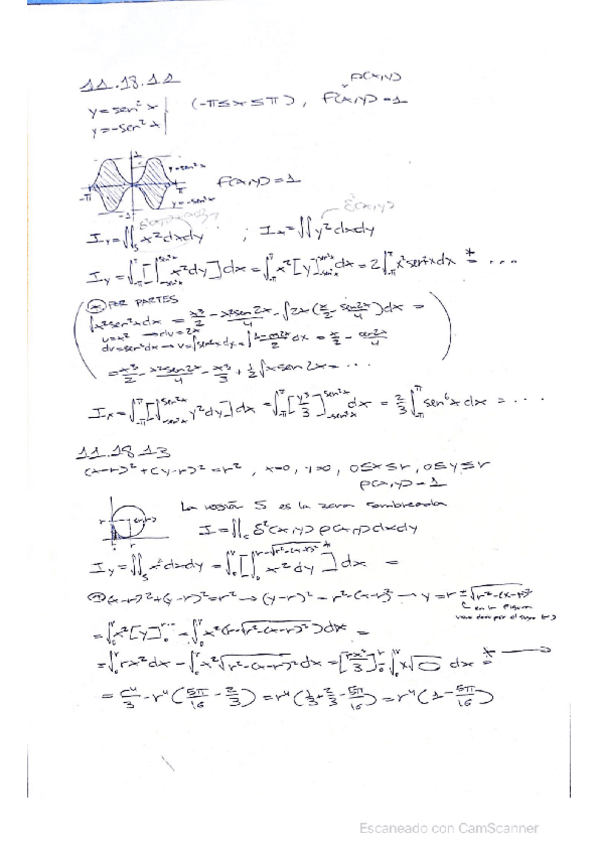 11.18.11
ρ(x,y)
y=sen²x
y=-sen²x
(-π≤x≤π), f(x,y)=1
1
y=sen²x
-π
π
y=-sen²x
-1
f(x,y)=1
I_y=∬_S x²dxdy ; I_x=∬y²dxdy
I_y=∫_{-π}^{π}[∫_{-sen²x}^{sen²x} x²dy]dx=∫_{-π}^{π}x²[y]_{-sen²x}^{sen²x}dx=2∫_{-π}^{π}x²sen²xdx *= ....
* POR PARTES
∫x²sen²xdx = x³/2 - x²sen2x/4 - ∫2x(x/2 - sen2x/4)dx =
u=x² → du=2x
= x³/2 - x²sen2x/4 - x³/3 + 1/2∫xsen2x = ...
I_x=∫_{-π}^{π}[∫_{-sen²x}^{sen²x} y²dy]dx=∫_{-π}^{π}[y³/3]_{-sen²x}^{sen²x}dx = 2/3∫_{-π}^{π}sen⁶xdx = ...
11.18.13
(x-r)²+(y-r)²=r², x=0, y=0, 0≤x≤r, 0≤y≤r
ρ(x,y)=1
r
(r,r)
r
La región S es la zona sombreada
I=∬_S δ²(x,y)ρ(x,y)dxdy
I_y=∬_S x²dxdy=∫_0^r[∫_0^{r-√(r²-(x-r)²)} x²dy]dx =
(x-r)²+(y-r)²=r² → (y-r)²=r²-(x-r)² → y=r±√(r²-(x-r)²)
=∫_0^r x²[y]_0^{r-...}=∫_0^r x²(r-√(r²-(x-r)²))dx =
=∫_0^r rx²dx-∫_0^r x²√(r²-(x-r)²)dx=[rx³/3]_0^r-∫_0^r x√ dx *=
=r⁴/3-r⁴(5π/16-2/3)=r⁴(1/3+2/3-5π/16)=r⁴(1-5π/16)
Escaneado con CamScanner